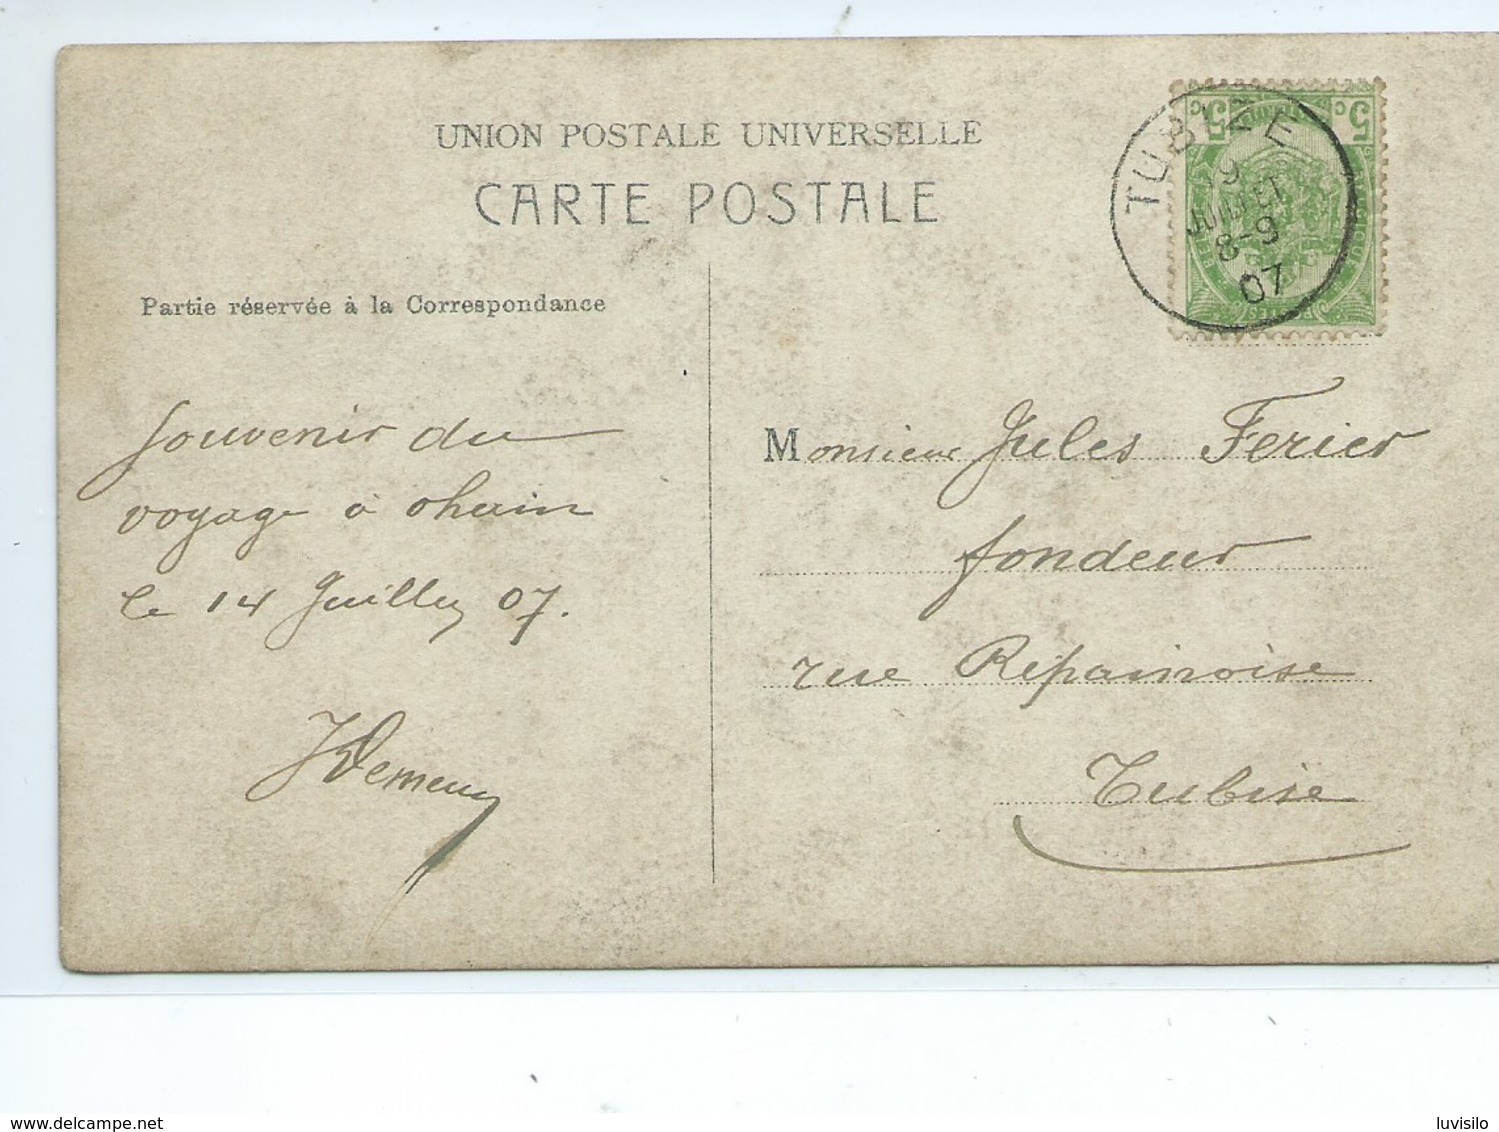 UNION POSTALE UNIVERSELLE
CARTE POSTALE
TUBIZE
19
JUILLET
8-9
07
5 c
c 5
Partie réservée à la Correspondance
Souvenir du
voyage à ohain
le 14 Juillet 07.
Monsieur Jules Ferier
fondeur
rue Ripainoise
Tubise
luvisilo